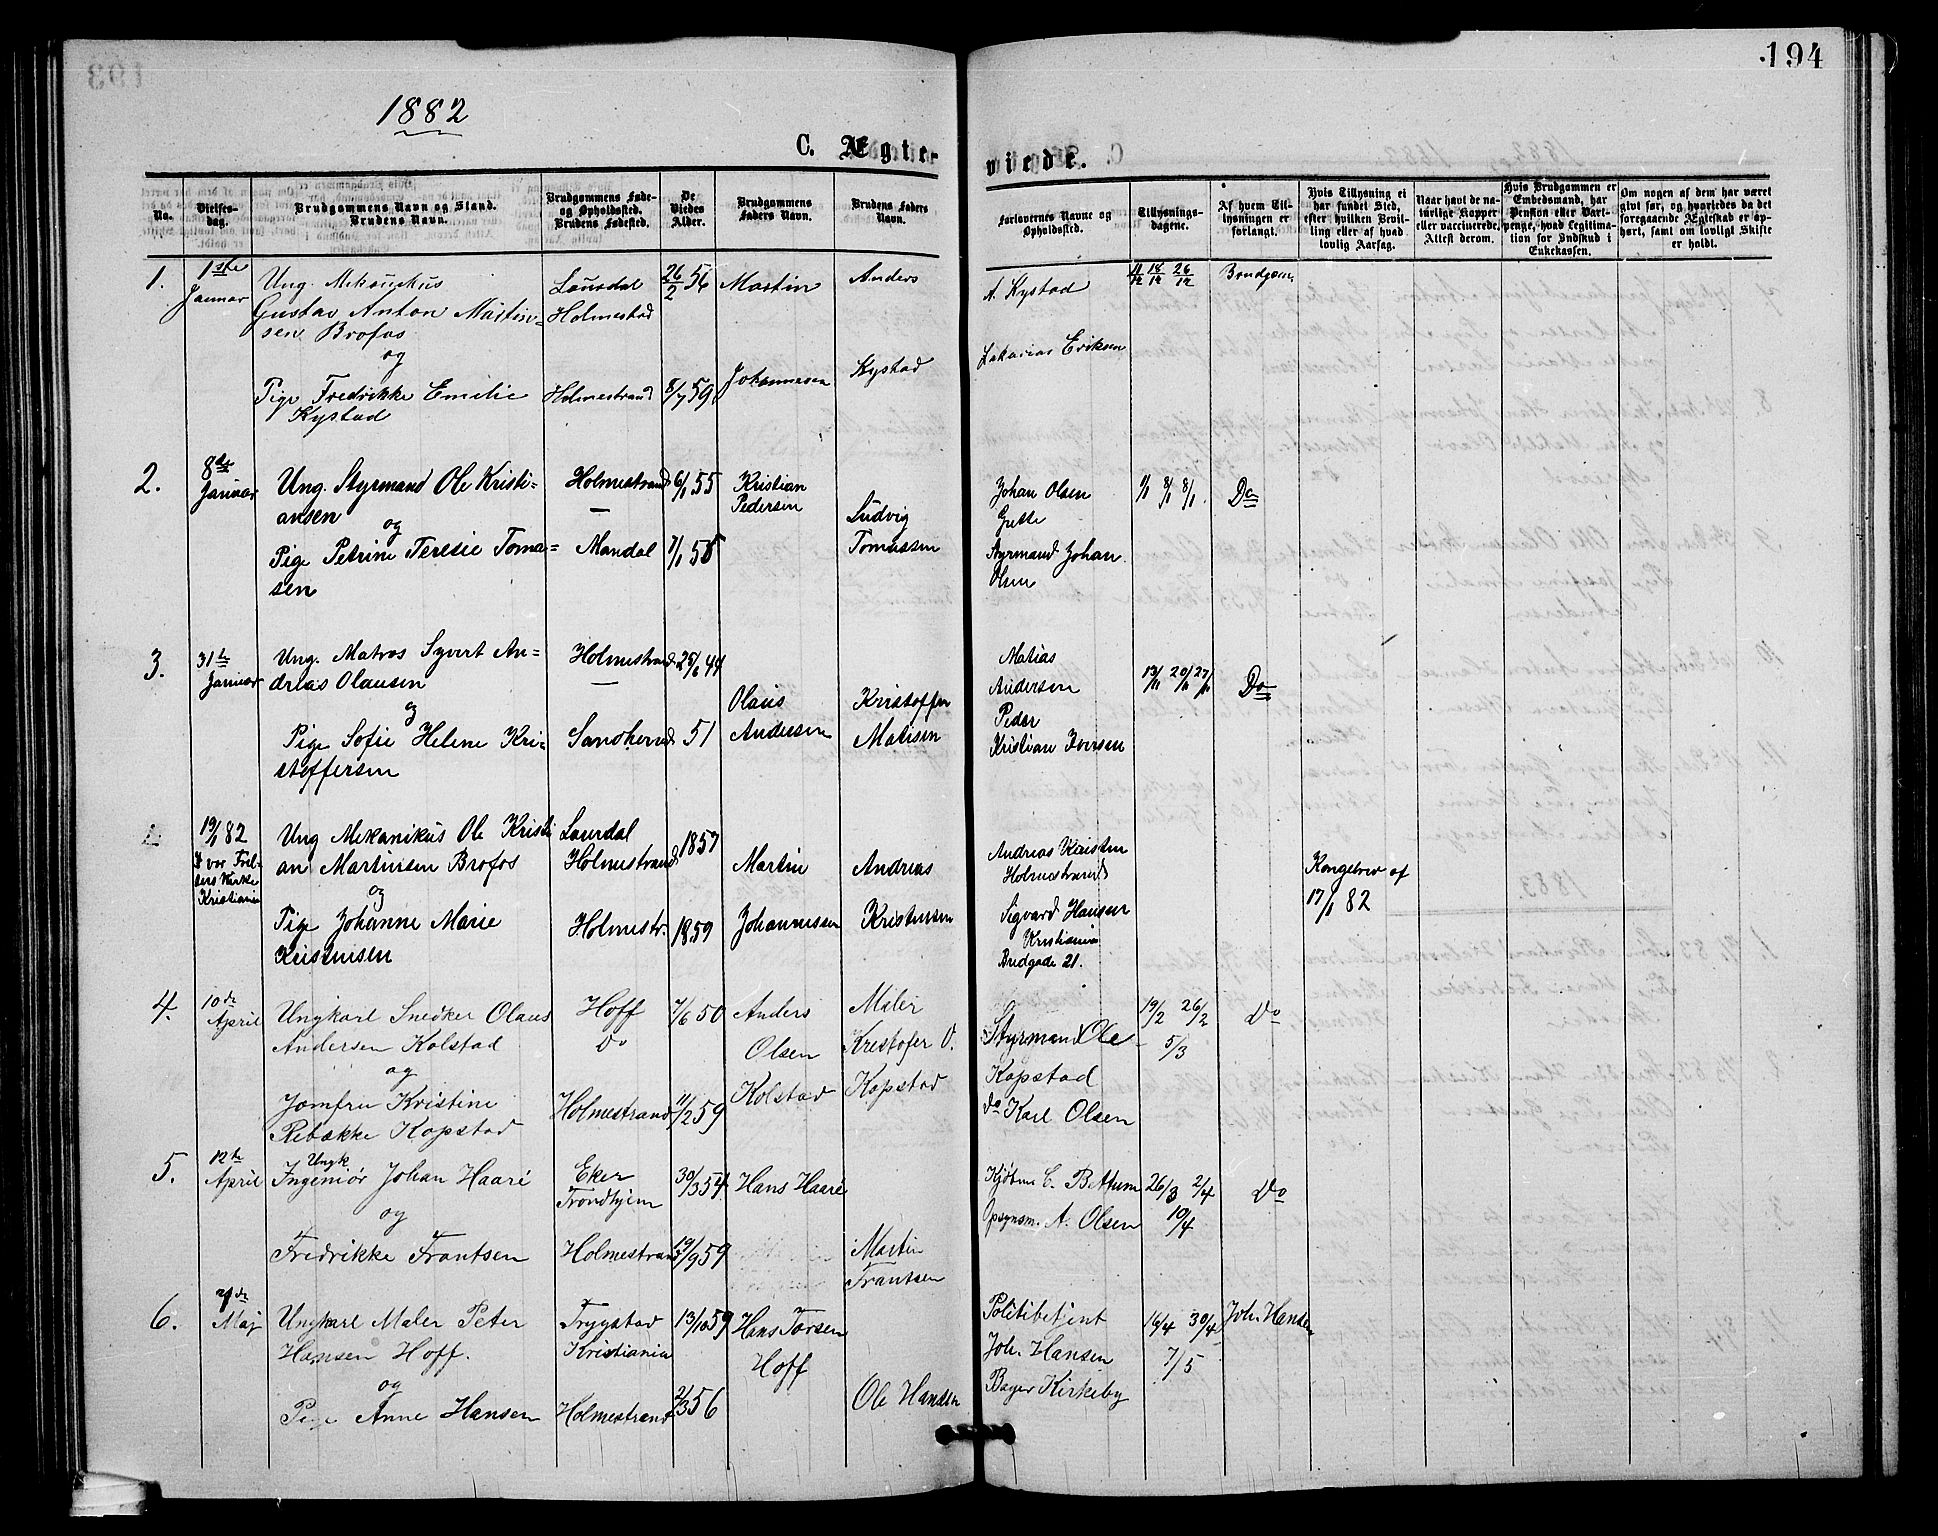 194
1882
C. Ægte-
viede.
No.
Vielses-
dag.
Brudgommens Navn og Stand.
Brudens Navn.
Brudgommens Føde-
og Opholdssted.
Brudens Fødested.
De
Viedes
Alder.
Brudgommens
Faders Navn.
Brudens Faders
Navn.
Forlovernes Navne og
Opholdssted.
Tillysnings-
dagene.
Af hvem Til-
lysningen er
forlangt.
Hvis Tillysning ei
har fundet Sted,
efter hvilken Bevil-
ling eller af hvad
lovlig Aarsag.
Naar havt de na-
turlige Kopper
eller vaccinerede.
Attest derom.
Hvis Brudgommen er
Embedsmand, har
Pension eller Vart-
penge, hvad Legitima-
tion for Indskud i
Enkekassen.
Om nogen af dem har været
givt før, og hvorledes da det
foregaaende Ægteskab er op-
hørt, samt om lovligt Skifte
er holdt.
1.
1ste
Januar
Ung. Mekanikus
Gustav Anton Martin-
sen Brofos
og
Pige Fredrikke Emilie
Kystad
Laurdal
Holmestad
Holmestrand
26/2 56
8/7 59
Martin
Johannesen
Anders
Kystad
A. Kystad
Zakarias Eriksen
11/12 18/12 26/12
Brudgom
2.
8de
Januar
Ung. Styrmand Ole Kristi-
ansen
og
Pige Petrine Teresie Toma-
sen
Holmestrand
—
Mandal
6/1 55
7/1 55
Kristian
Pedersen
Ludvig
Tomassen
Johan Olsen
Grette
Styrmand Johan
Olsen
1/1 8/1 8/1
Do
3.
31te
Januar
Ung. Matros Syvert An-
dreas Olausen
og
Pige Sofie Helene Kri-
stoffersen
Holmestrand
—
Sandherred
25/6 44
51
Olaus
Andersen
Kristoffer
Matisen
Matias
Andersen
Peder
Kristian Iversen
13/11 20/11 27/11
Do
19/1 82
I vor Frel-
sers Kirke
Kristiania
Ung Mekanikus Ole Kristi
an Martinsen Brofos
og
Pige Johanne Marie
Kristensen
Laurdal
Holmestrand
Holmestr.
1857
1859
Martin
Johannessen
Andreas
Kristensen
Andreas Kristen
Holmestrand
Sigvard Hansen
Kristiania
Bredgade 21.
Kongebrev af
17/1 82
4.
10de
April
Ungkarl Snedker Olaus
Andersen Kolstad
og
Jomfru Kristine
Rebekke Kopstad
Hoff
Do
Holmestrand
7/6 50
11/2 59
Anders
Olsen
Kolstad
Maler
Krestofer O.
Kopstad
Styrmand Ole
Kopstad
do Karl Olsen
19/2 26/2
5/3
Do
5.
12te
April
Ungk
Ingeniør Johan Haare
og
Fredrikke Frantsen
Eker
Trondhjem
Holmestrand
30/3 54
19/9 59
Hans Haare
Martin
Frantsen
Kjøbm C. Bettum
Opsynsm. A. Olsen
26/3 2/4
10/4
Do
6.
7de
Maj
Ungkarl Maler Peter
Hansen Hoff.
og
Pige Anne Hansen
Trygstad
Kristiania
Holmestrand
13/10 59
2/3 56
Hans Torsen
Hoff
Ole Hansen
Politibetjent
Joh. Hansen
Bager Kirkeby
16/4 30/4
7/5
Joh. Hansen